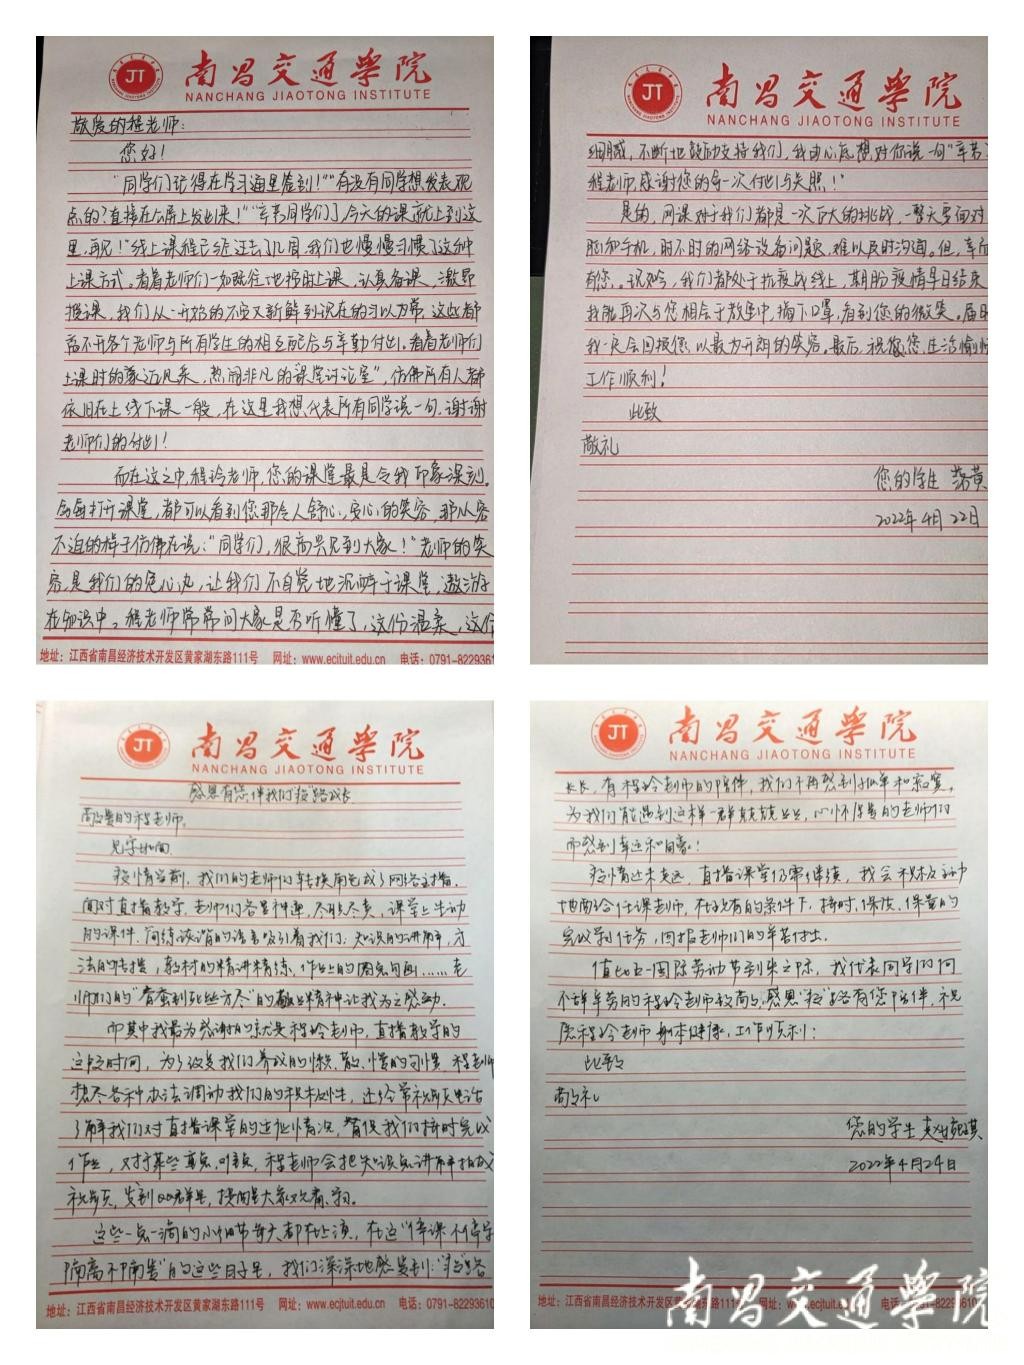 南昌交通学院
NANCHANG JIAOTONG INSTITUTE
敬爱的程老师：
您好！
“同学们记得在学习通里签到！”“有没有同学想发表观
点的？直接在公屏上发出来！”“辛苦同学们了，今天的课就上到这
里，再见！”线上课程已经过去了几周，我们也慢慢习惯了这种
上课方式。看着老师们一如既往地按时上课、认真备课、激昂
授课，我们从一开始的不安又新鲜到现在的习以为常，这些都
离不开各个老师与所有学生的相互配合与辛勤付出。看着老师们
上课时的 热闹非凡的课堂讨论室”，仿佛所有人都
依旧在上线下课一般，在这里我想代表所有同学说一句，谢谢
老师们的付出！
而在这之中，程玲老师，您的课堂最是令我印象深刻。
每每打开课堂，都可以看到您那令人舒心，安心的笑容，那从容
不迫的样子仿佛在说：“同学们，很高兴见到大家！”老师的笑
容，是我们的定心丸，让我们不自觉地沉醉于课堂，遨游于
在知识中。程老师常常问大家是否听懂了，这份温柔，这份
地址：江西省南昌经济技术开发区黄家湖东路111号 网址：www.ecjtuit.edu.cn 电话：0791-8229361
南昌交通学院
NANCHANG JIAOTONG INSTITUTE
细腻，不断地鼓励支持我们，我由心底想对你说一句“辛苦了
程老师，感谢您的每一次付出与关照！”
是的，网课对于我们都是一次巨大的挑战，一整天要面对
脑和手机，时不时的网络设备问题，难以及时沟通。但，幸而
有您。说如今，我们都处于抗疫战线上，期盼疫情早日结束
我能再次与您相会于教室中，摘下口罩，看到您的微笑。届时
我一定会回报您，以最为开朗的笑容。最后，祝您 生活愉快
工作顺利！
此致
敬礼
您的学生
2022年4月22日
南昌交通学院
NANCHANG JIAOTONG INSTITUTE
感恩有您，伴我们“疫”路成长
尊敬的程老师：
见字如面
疫情当前，我们的老师们转换角色成了网络主播。
面对直播教学，老师们各显神通，尽职尽责，课堂上生动
的课件、简练诙谐的语言吸引着我们；知识的讲解，方
法的传授，教材的精讲精练，作业上的圈圈勾画……老
师们的“春蚕到死丝方尽”的敬业精神让我为之感动。
而其中我最为感谢的就是程玲老师，直播教学的
这段时间，为了改变我们养成的懒、散、慢的习惯，程老师
想尽各种办法调动我们的积极性，还经常视频电话
了解我们对直播课堂的适应情况，督促我们按时完成
作业，对于某些重点、难点，程老师会把知识点讲解拍成
视频，发到QQ群里，提醒大家观看学习。
这些一点一滴的小细节每天都在上演，在这“停课不停学
隔离不隔爱”的这些日子里，我们深深地感受到：“疫”路
地址：江西省南昌经济技术开发区黄家湖东路111号 网址：www.ecjtuit.edu.cn 电话：0791-8229361
南昌交通学院
NANCHANG JIAOTONG INSTITUTE
成长，有程玲老师的陪伴，我们不再感到孤单和寂寞，
为我们能遇到这样一群兢兢业业，心怀 的老师们
而感到幸运和自豪！
疫情还未走远，直播课堂仍需继续，我会积极主动
地配合任课老师，在现有的条件下，按时、保质、保量的
完成学习任务，回报老师们的辛苦付出。
值此五一国际劳动节到来之际，我代表同学们向
不辞辛劳的程玲老师致敬，感恩“疫”路有您陪伴，祝
愿程玲老师身体健康，工作顺利！
此致
敬礼
您的学生
2022年4月24日
地址：江西省南昌经济技术开发区黄家湖东路111号 网址：www.ecjtuit.edu.cn 电话：0791-82293610
南昌交通学院